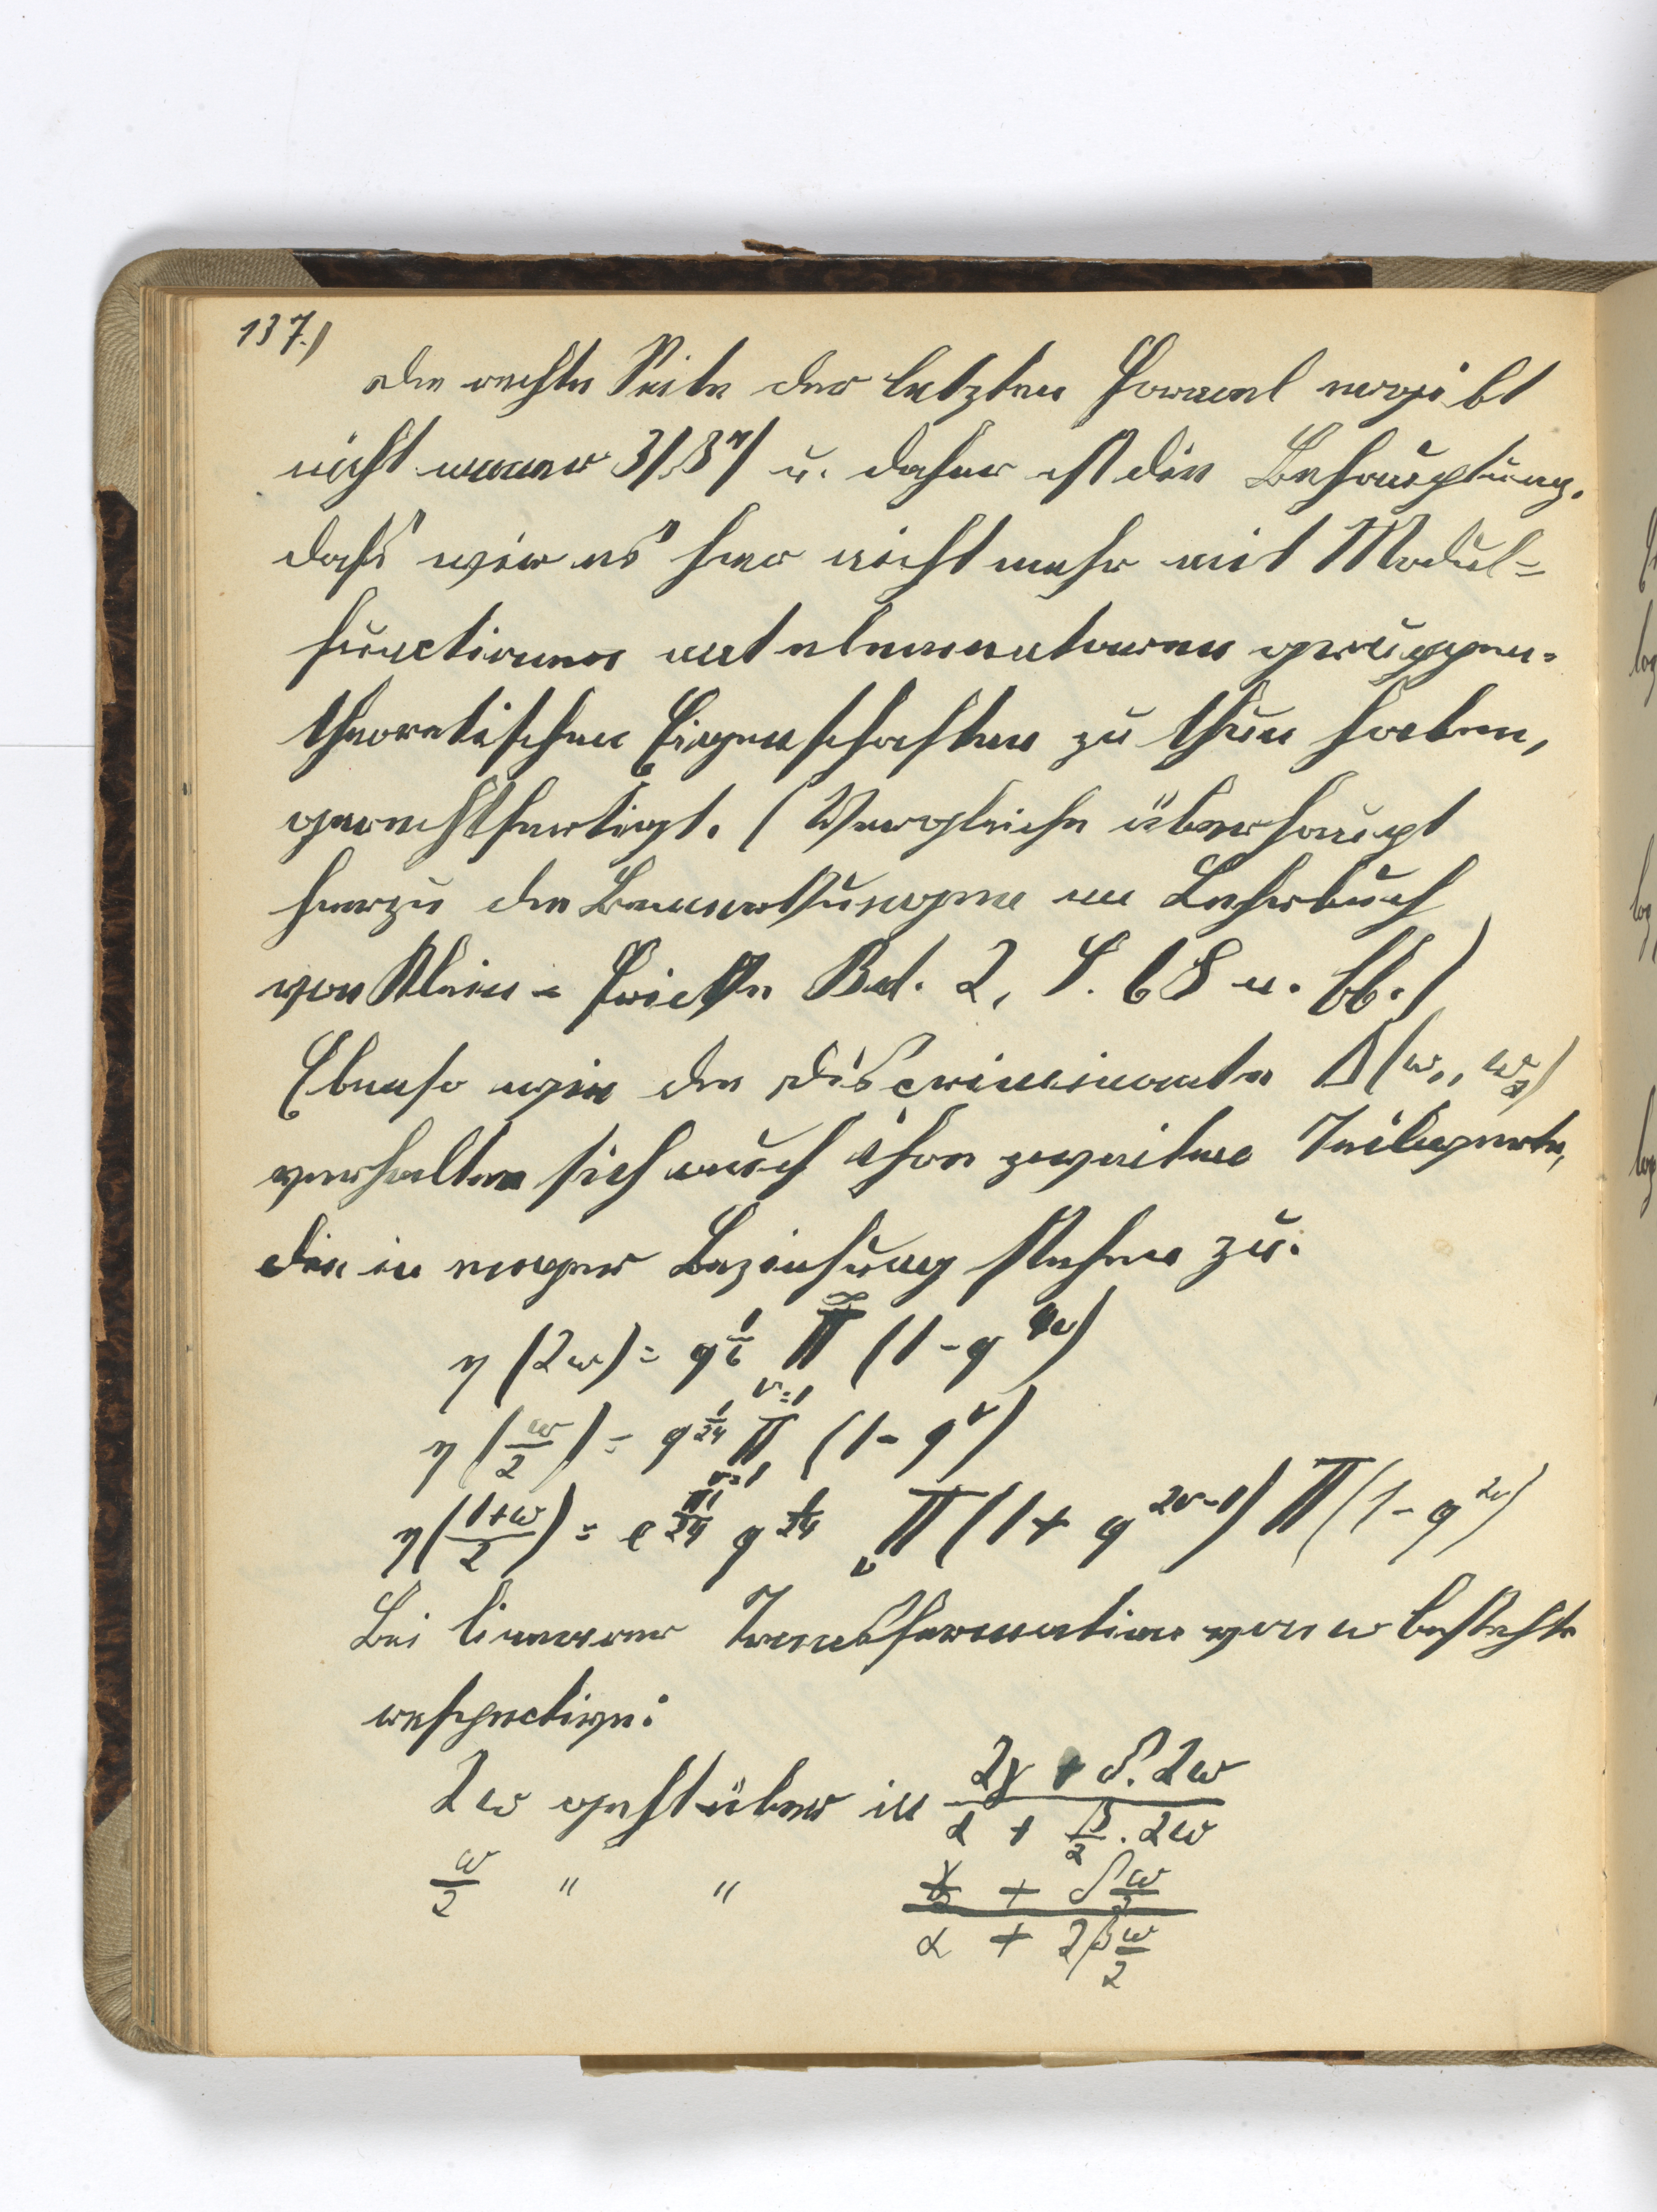 137.)
die rechte Seite der letzten Formel ergibt
nicht immer 3/8π u. daher ist die Behauptung,
daß wir es hier nicht mehr mit Modul=
functionen mit elementaren gruppen=
theoretischen Eigenschaften zu thun haben,
gerechtfertigt. (Vergleiche überhaupt
hierzu die Bemerkungen im Lehrbuch
von Klein = Fricke Bd. 2, S. 68 u. ff.)
Ebenso wie die Discriminante Δ(ω₁, ω₂)
verhalten sich auch ihre zweiten Teilwerte,
die in enger Beziehung stehen zu:
η(2ω) = q^{1/6} ∏_{ν=1}^{∞} (1 - q^{4ν})
η(ω/2) = q^{1/24} ∏_{ν=1} (1 - q^{ν})
η((1+ω)/2) = e^{πi/24} q^{1/24} ∏_ν (1 + q^{2ν-1}) ∏ (1 - q^{2ν})
Bei linearer Transformation von ω besteht
respective:
2ω geht über in (2γ + δ. 2ω)/(α + β/2 . 2ω)
ω/2 " " (γ/2 + δ ω/2)/(α + 2β ω/2)